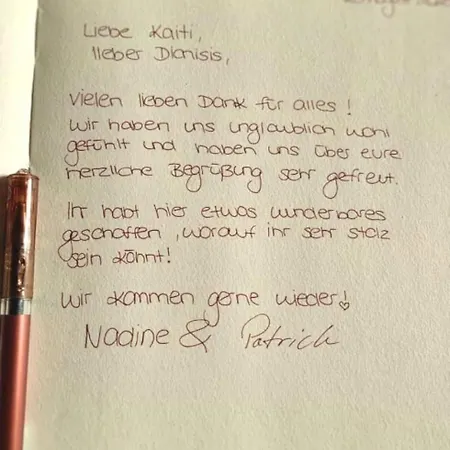 Liebe Kaiti,
lieber Dionisis,
vielen lieben Dank für alles!
Wir haben uns unglaublich wohl
gefühlt und haben uns über eure
herzliche Begrüßung sehr gefreut.
Ihr habt hier etwas wunderbares
geschaffen, worauf ihr sehr stolz
sein könnt!
Wir kommen gerne wieder!
Nadine & Patrick